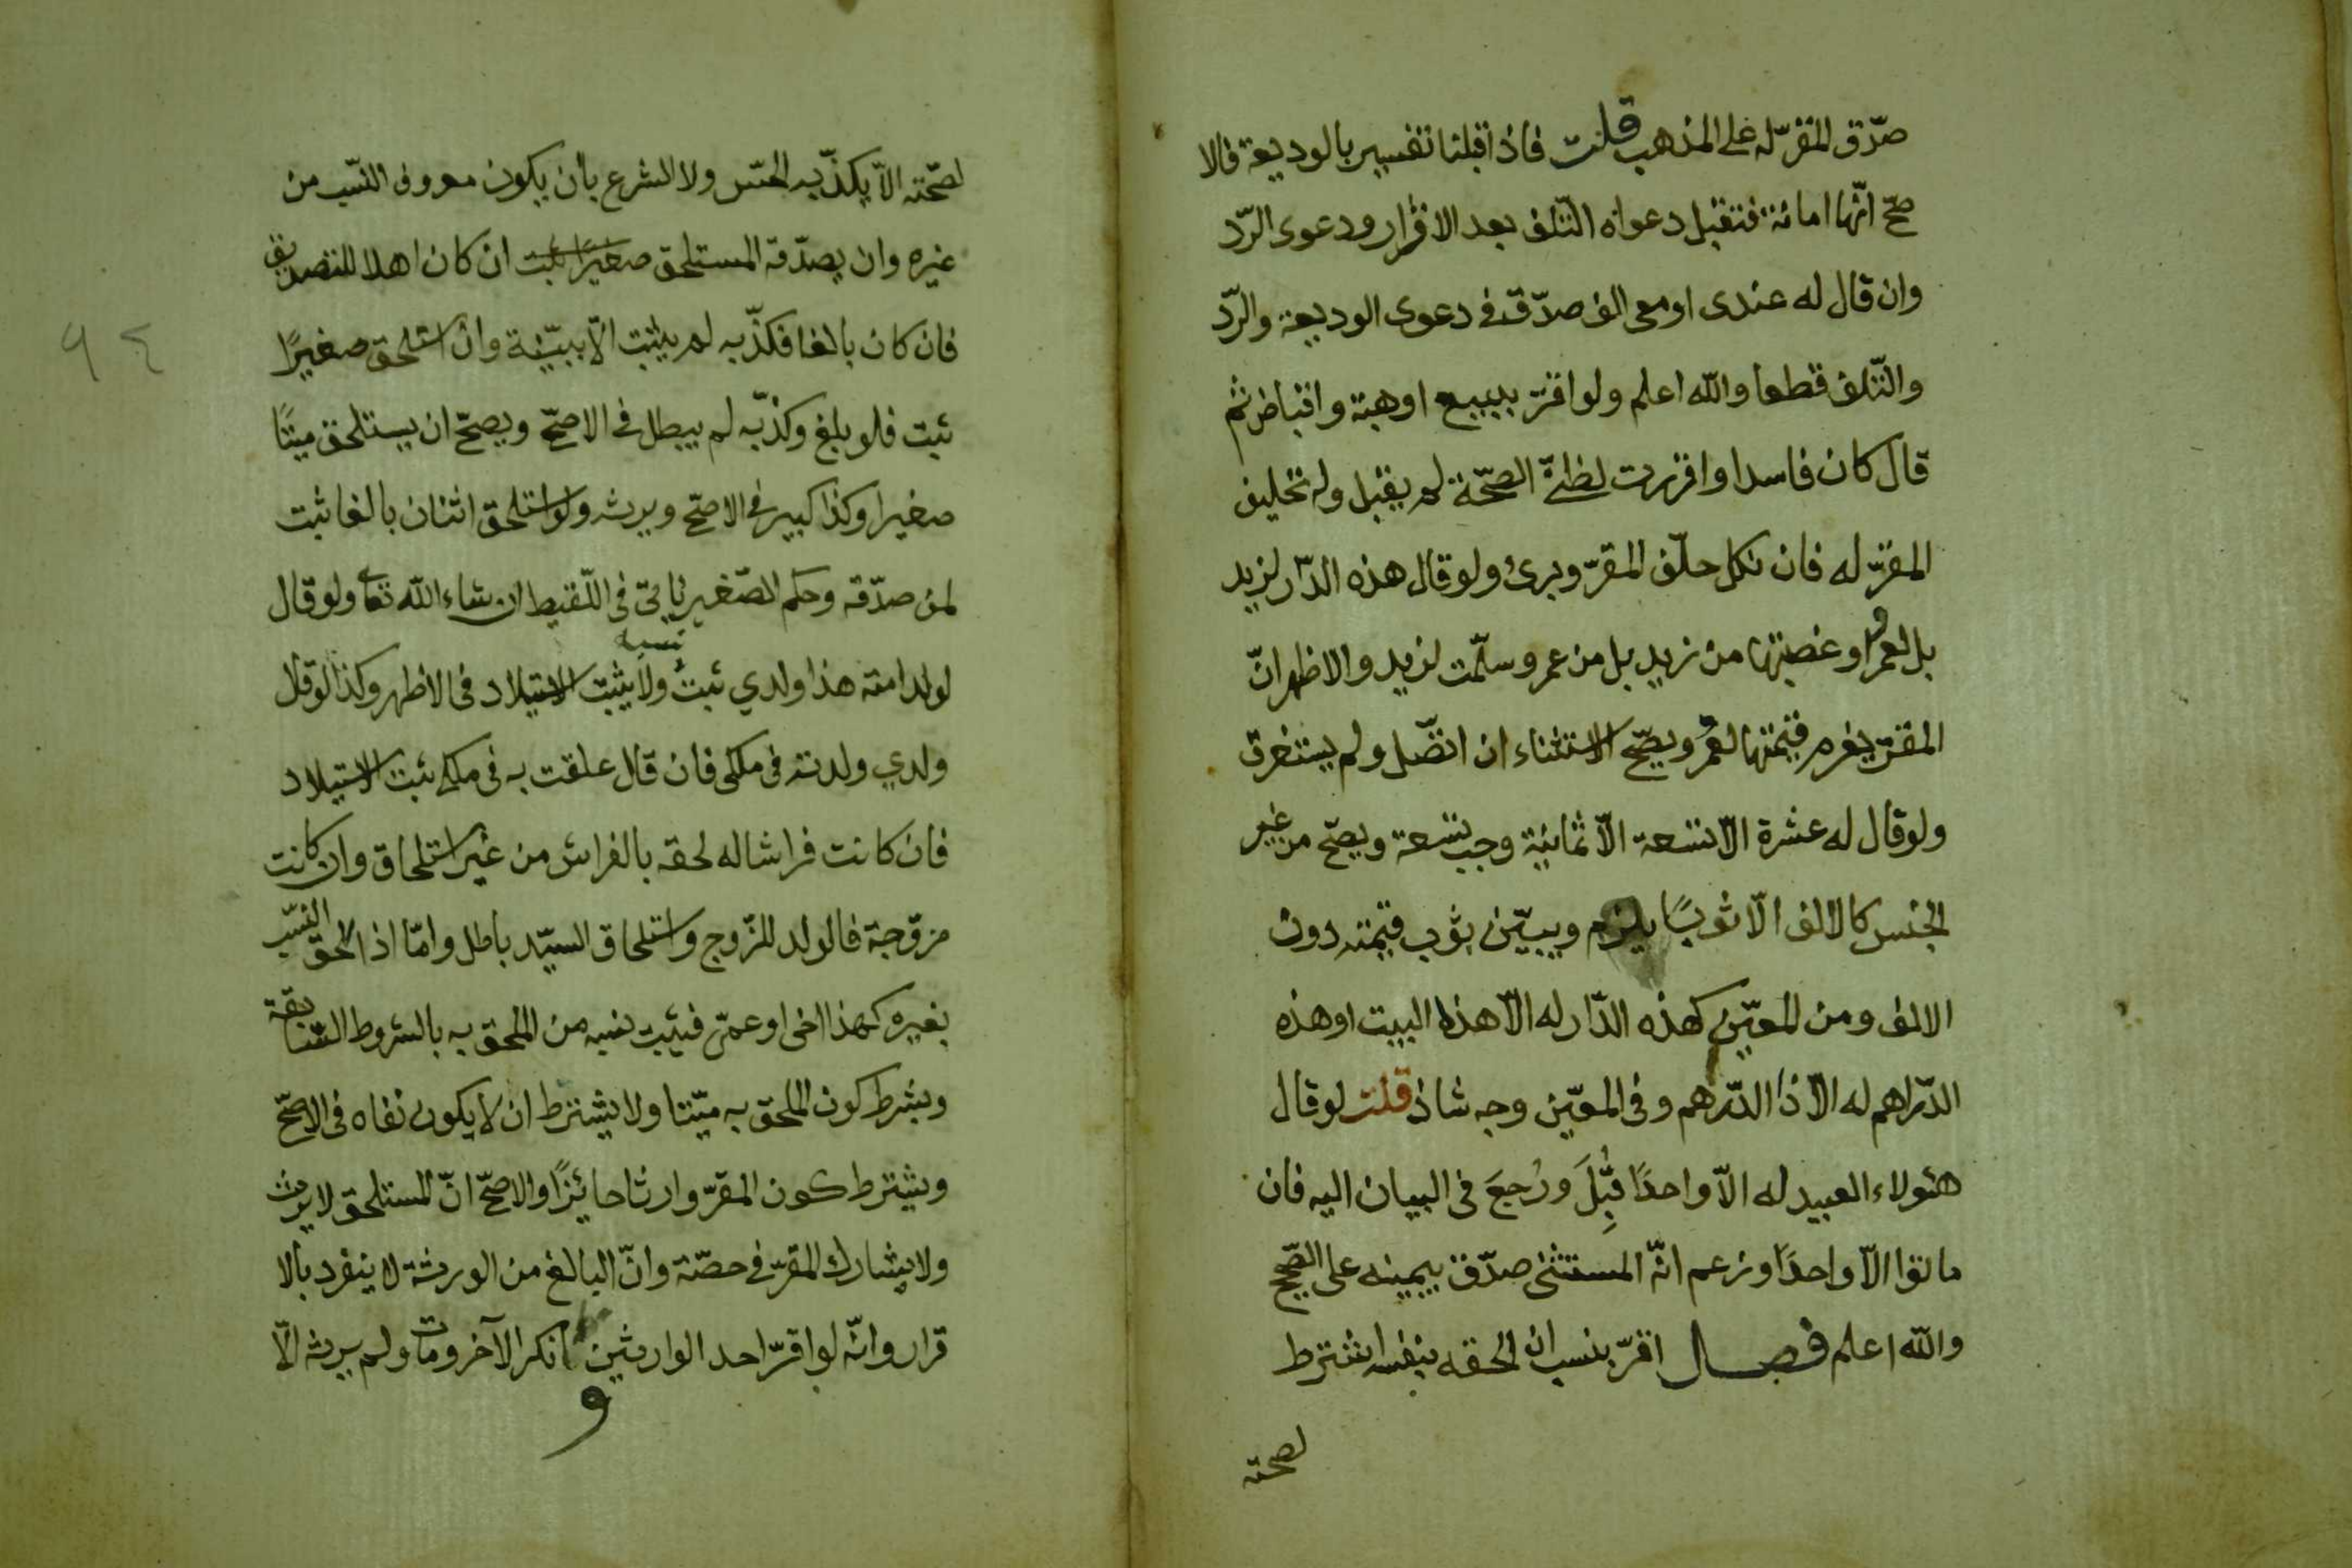 صدّق المقرّ له على المذهب قلت فاذا قبلنا تفسيره بالوديعة فالا
صحّ انّها امانة فتقبل دعواه التّلف بعد الاقرار ودعوى الرّد
وان قال له عندى او معى الف صدّق فى دعوى الوديعة والرّد
والتّلف قطعا والله اعلم ولو اقرّ ببيع او هبة واقباض ثم
قال كان فاسدا واقررت لظنّى الصحّة لم يقبل وله تحليف
المقرّ له فان نكل حلّف المقرّ وبرئ ولو قال هذه الدّار لزيد
بل لعمرو او غصبتها من زيد بل من عمرو سلّمت لزيد والاظهر انّ
المقرّ يغرم قيمتها لعمرو ويصحّ الاستثناء ان اتصّل ولم يستغرق
ولو قال له عشرة الّا تسعة الّا ثمانية وجب تسعة ويصحّ من غير
الجنس كالالف الّا ثوبًا يلزم ويبيّن بثوب قيمته دون
الالف ومن المعيّن كهذه الدّار له الّا هذا البيت او هذه
الدّراهم له الّا ذا الدّرهم وفى المعيّن وجه شاذ قلت لو قال
هٔولاء العبيد له الّا واحدًا قُبِلَ ورُجِعَ فى البيان اليه فان
ماتوا الّا واحدًا وزعم انّه المستثنى صدّق بيمينه على الصّحيح
والله اعلم فصل اقرّ بنسب ان الحقه بنفسه اشترط
لصحته
لصحّته الّا يكذّبه الحسّ ولا الشرع بأن يكون معروف النّسب من
غيره وان يصدّقه المستلحق صغيرًا ثبت ان كان اهلا للتصديق
فان كان بالغا فكذّبه لم يثبت الّا ببيّنة وان استلحق صغيرًا
ثبت فلو بلغ وكذّبه لم يبطل فى الاصحّ ويصحّ ان يستلحق ميّتًا
صغيرا وكذا كبير فى الاصحّ ويرثه ولو استلحق اثنان بالغا ثبت
لمن صدّقه وحكم الصّغير يأتى فى اللّقيط ان شاء الله تعا ولو قال
نسبه
لولد امته هذا ولدي ثبت ولا يثبت الاستيلاد فى الاظهر وكذا لو قال
ولدي ولدته فى ملكى فان قال علقت به فى ملكى ثبت الاستيلاد
فان كانت فراشا له لحقه بالفراش من غير استلحاق وان كانت
مزوّجة فالولد للزّوج واستلحاق السيّد باطل وامّا اذا الحق النّسب
بغيره كهذا اخى او عمّى فيثبت نسبه من الملحق به بالشروط السّابقة
وبشرط كون الملحق به ميّتا ولا يشترط ان لا يكون نفاه فى الاصحّ
ويشترط كون المقرّ وارثا حائزًا والاصحّ انّ المستلحق لا يرث
ولا يشارك المقرّ فى حصّته وانّ البالغ من الورثة لا ينفرد بالا
قرار وانّه لو اقرّ احد الوارثين وانكر الآخر ومات ولم يرثه الّا
و
٩٤